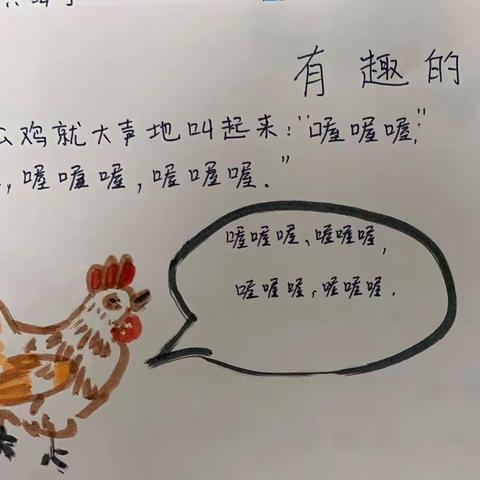 有趣的
么鸡就大声地叫起来："喔喔喔,"
,喔喔喔,喔喔喔."
喔喔喔、喔喔喔,
喔喔喔,喔喔喔.